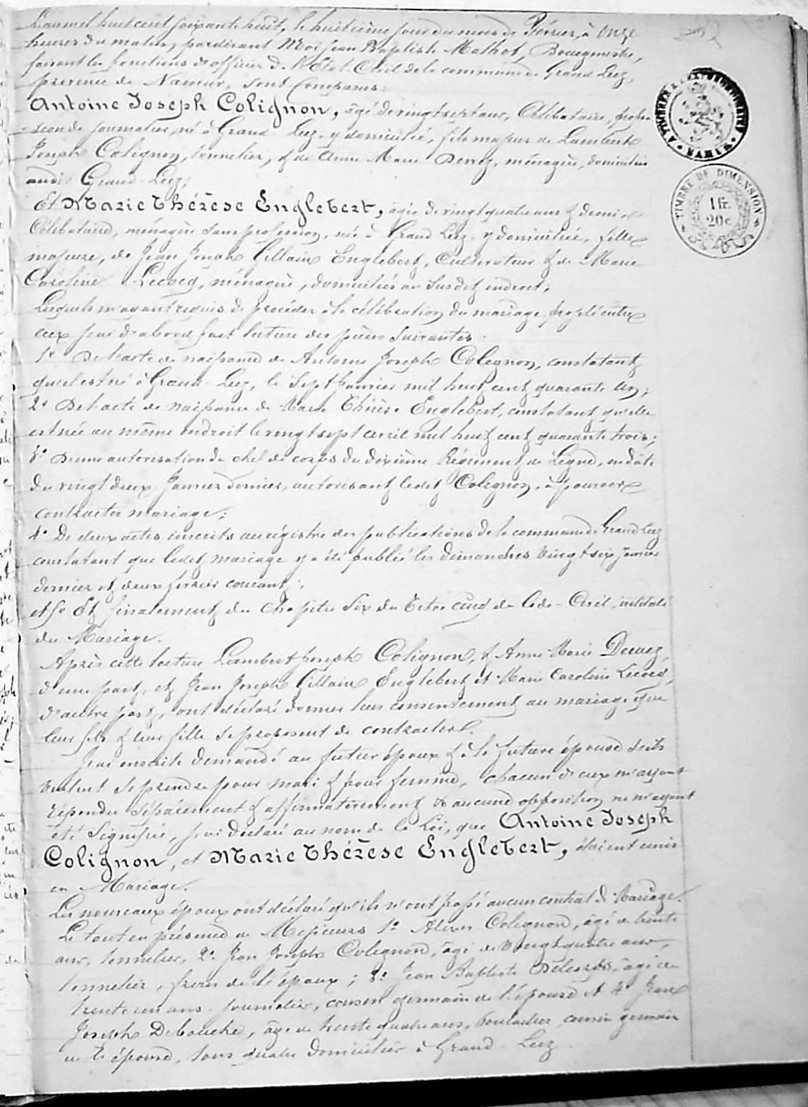 L'an mil huit cent soixante huit, le huitième jour du mois de Février, à onze
heures du matin, pardevant Moi Jean Baptiste Mathot, Bourgmestre,
faisant les fonctions d'officier de l'Etat Civil de la commune de Grand Leez,
province de Namur, sont comparus:
Antoine Joseph Colignon, âgé de vingt sept ans, Célibataire, profes
sion de journalier, né à Grand-Leez, y domicilié, fils majeur de Lambert
Joseph Colignon, tonnelier, & de Anne Marie ménagère, domiciliés
audit Grand-Leez;
Et Marie Thérèse Englebert, âgée de vingt quatre ans & demi
Célibataire, ménagère sans profession, née à Grand Leez, y domiciliée, fille
majeure, de Jean Joseph Gillain Englebert, Cultivateur & de Marie
Caroline Lecocq, ménagère, domiciliés au Susdit endroit;
Lesquels m'ayant requis de procéder à la célébration du mariage projeté entre
eux j'ai d'abord fait lecture des pièces suivantes:
1° De l'acte de naissance de Antoine Joseph Colignon, constatant
qu'il est né à Grand-Leez, le Sept mil huit cent quarante un;
2° De l'acte de naissance de Marie Thérèse Englebert, constatant qu'elle
est née au même endroit le vingt sept avril mil huit cent quarante trois;
3° D'une autorisation du chef de corps du dixième Régiment de Ligne, en date
du vingt deux Janvier dernier, autorisant ledit Colignon, à pouvoir
contracter mariage;
4° De deux actes inscrits au registre des publications de la commune de Grand Leez
constatant que ledit mariage y a été publié les dimanches vingt six janvier
dernier et deux février courant;
et 5° Et finalement du Chapitre Six du Titre cinq du Code Civil, intitulé
du Mariage.
Après cette lecture Lambert Joseph Colignon, & Anne Marie
d'une part, et Jean Joseph Gillain Englebert et Marie Caroline Lecocq,
d'autre part, ont déclaré donner leur consentement au mariage que
leur fils & leur fille se proposent de contracter.
J'ai ensuite demandé au futur époux & à la future épouse s'ils
veulent se prendre pour mari & pour femme, chacun d'eux m'ayant
répondu séparément & affirmativement & aucune opposition ne m'ayant
été signifiée, j'ai déclaré au nom de la Loi, que Antoine Joseph
Colignon, et Marie Thérèse Englebert, étaient unis
en Mariage.
Les nouveaux époux ont déclaré qu'ils n'ont passé aucun contrat de Mariage.
Le tout en présence de Messieurs 1° Alexis Colignon, âgé de trente
ans, tonnelier, 2° Jean Joseph Colignon, âgé de vingt quatre ans,
tonnelier, frères de l'époux; 3° Jean Baptiste âgé de
trente un ans, journalier, cousin germain de l'épouse et 4° Jean
Joseph Debouche, âgé de trente quatre ans, cousin germain
de l'épouse, tous quatre domiciliés à Grand-Leez.
NAMUR
TIMBRE DE DIMENSION
1 fr.
20 c.